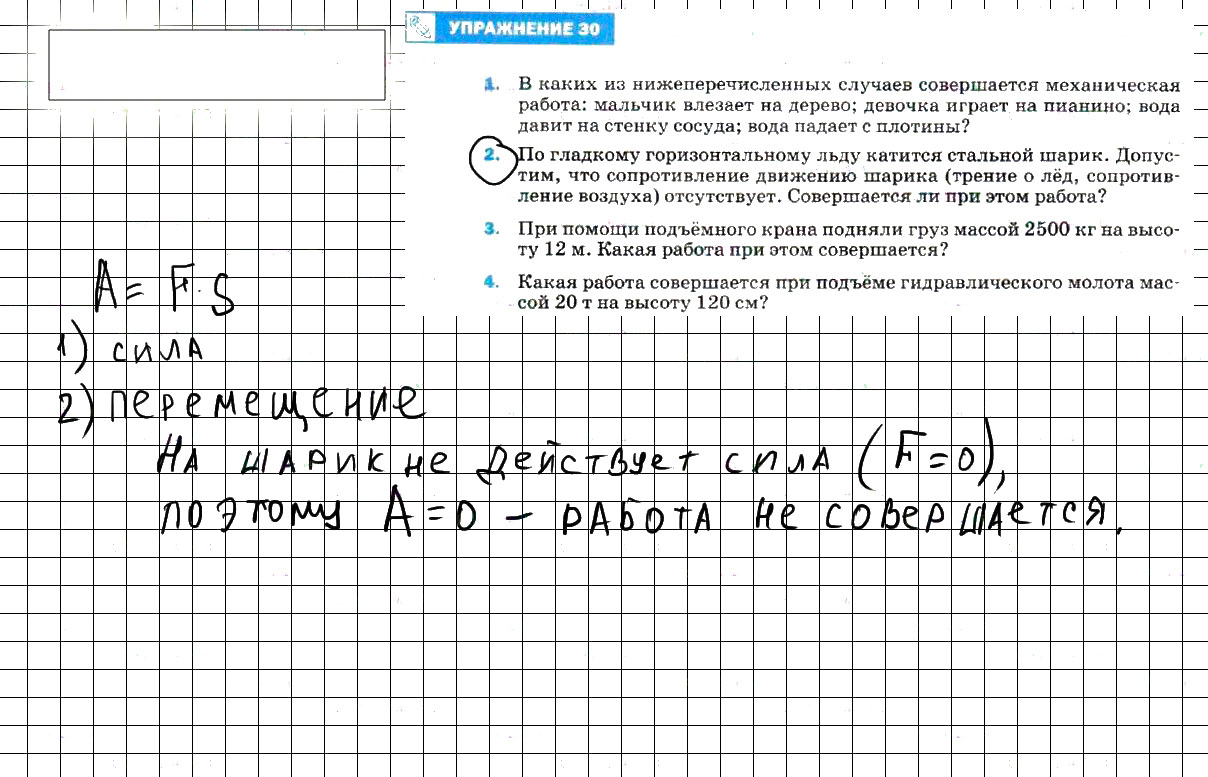 УПРАЖНЕНИЕ 30
1. В каких из нижеперечисленных случаев совершается механическая
работа: мальчик влезает на дерево; девочка играет на пианино; вода
давит на стенку сосуда; вода падает с плотины?
2. По гладкому горизонтальному льду катится стальной шарик. Допус-
тим, что сопротивление движению шарика (трение о лёд, сопротив-
ление воздуха) отсутствует. Совершается ли при этом работа?
3. При помощи подъёмного крана подняли груз массой 2500 кг на высо-
ту 12 м. Какая работа при этом совершается?
4. Какая работа совершается при подъёме гидравлического молота мас-
сой 20 т на высоту 120 см?
A = F · S
1) сила
2) перемещение
На шарик не действует сила (F=0),
поэтому A=0 – работа не совершается.